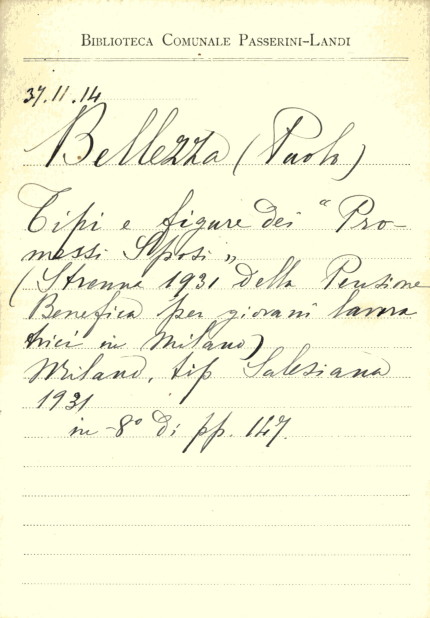 BIBLIOTECA COMUNALE PASSERINI-LANDI
37.11.14
Bellezza (Paolo)
Tipi e figure dei "Pro-
messi Sposi"
(Strenna 1931 della Pensione
Benefica per giovani lavora
trici in Milano)
Milano, tip Salesiana
1931
in-8° di pp. 147.